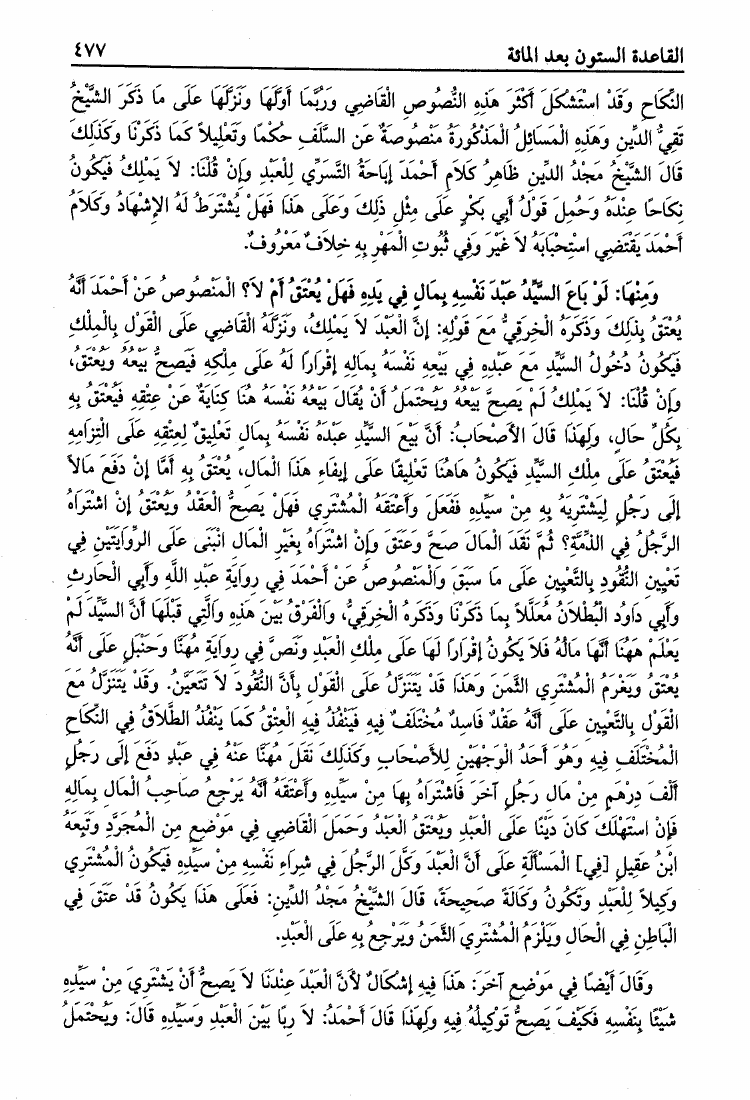 القاعدة الستون بعد المائة
٤٧٧
النِّكَاحِ وَقَدْ اسْتَشْكَلَ أَكْثَرَ هَذِهِ النُّصُوصِ الْقَاضِي وَرُبَّمَا أَوَّلَهَا وَنَزَّلَهَا عَلَى مَا ذَكَرَ الشَّيْخُ
تَقِيُّ الدِّينِ وَهَذِهِ الْمَسَائِلُ الْمَذْكُورَةُ مَنْصُوصَةٌ عَنِ السَّلَفِ حُكْمًا وَتَعْلِيلاً كَمَا ذَكَرْنَا وَكَذَلِكَ
قَالَ الشَّيْخُ مَجْدُ الدِّينِ ظَاهِرُ كَلَامِ أَحْمَدَ إبَاحَةُ التَّسَرِّي لِلْعَبْدِ وَإِنْ قُلْنَا: لاَ يَمْلِكُ فَيَكُونُ
نِكَاحًا عِنْدَهُ وَحُمِلَ قَوْلُ أَبِي بَكْرٍ عَلَى مِثْلِ ذَلِكَ وَعَلَى هَذَا فَهَلْ يُشْتَرَطُ لَهُ الإِشْهَادُ وَكَلاَمُ
أَحْمَدَ يَقْتَضِي اسْتِحْبَابَهُ لاَ غَيْرَ وَفِي ثُبُوتِ الْمَهْرِ بِهِ خِلاَفٌ مَعْرُوفٌ.
وَمِنْهَا: لَوْ بَاعَ السَّيِّدُ عَبْدَ نَفْسِهِ بِمَالٍ فِي يَدِهِ فَهَلْ يُعْتَقُ أَمْ لاَ؟ الْمَنْصُوصُ عَنْ أَحْمَدَ أَنَّهُ
يُعْتَقُ بِذَلِكَ وَذَكَرَهُ الْخِرَقِيُّ مَعَ قَوْلِهِ: إنَّ الْعَبْدَ لاَ يَمْلِكُ، وَنَزَّلَهُ الْقَاضِي عَلَى الْقَوْلِ بِالْمِلْكِ
فَيَكُونُ دُخُولُ السَّيِّدِ مَعَ عَبْدِهِ فِي بَيْعِهِ نَفْسَهُ بِمَالِهِ إقْرَارًا لَهُ عَلَى مِلْكِهِ فَيَصِحُّ بَيْعُهُ وَيُعْتَقُ،
وَإِنْ قُلْنَا: لاَ يَمْلِكُ لَمْ يَصِحَّ بَيْعُهُ وَيُحْتَمَلُ أَنْ يُقَالَ بَيْعُهُ نَفْسَهُ هُنَا كِنَايَةٌ عَنْ عِتْقِهِ فَيُعْتَقُ بِهِ
بِكُلِّ حَالٍ، وَلِهَذَا قَالَ الأَصْحَابُ: أَنَّ بَيْعَ السَّيِّدِ عَبْدَهُ نَفْسَهُ بِمَالٍ تَعْلِيقٌ لِعِتْقِهِ عَلَى الْتِزَامِهِ
فَيُعْتَقُ عَلَى مِلْكِ السَّيِّدِ فَيَكُونُ هَاهُنَا تَعْلِيقًا عَلَى إيفَاءِ هَذَا الْمَالِ، يُعْتَقُ بِهِ أَمَّا إنْ دَفَعَ مَالاً
إلَى رَجُلٍ لِيَشْتَرِيَهُ بِهِ مِنْ سَيِّدِهِ فَفَعَلَ وَأَعْتَقَهُ الْمُشْتَرِي فَهَلْ يَصِحُّ الْعَقْدُ وَيُعْتَقُ إنْ اشْتَرَاهُ
الرَّجُلُ فِي الذِّمَّةِ؟ ثُمَّ نَقَدَ الْمَالَ صَحَّ وَعَتَقَ وَإِنْ اشْتَرَاهُ بِغَيْرِ الْمَالِ انْبَنَى عَلَى الرِّوَايَتَيْنِ فِي
تَعْيِينِ النُّقُودِ بِالتَّعْيِينِ عَلَى مَا سَبَقَ وَالْمَنْصُوصُ عَنْ أَحْمَدَ فِي رِوَايَةِ عَبْدِ اللَّهِ وَأَبِي الْحَارِثِ
وَأَبِي دَاوُد الْبُطْلاَنُ مُعَلَّلاً بِمَا ذَكَرْنَا وَذَكَرَهُ الْخِرَقِيُّ، وَالْفَرْقُ بَيْنَ هَذِهِ وَالَّتِي قَبْلَهَا أَنَّ السَّيِّدَ لَمْ
يَعْلَمْ هَهُنَا أَنَّهَا مَالُهُ فَلاَ يَكُونُ إقْرَارًا لَهَا عَلَى مِلْكِ الْعَبْدِ وَنَصَّ فِي رِوَايَةِ مُهَنَّا وَحَنْبَلٍ عَلَى أَنَّهُ
يُعْتَقُ وَيَغْرَمُ الْمُشْتَرِي الثَّمَنَ وَهَذَا قَدْ يَتَنَزَّلُ عَلَى الْقَوْلِ بِأَنَّ النُّقُودَ لاَ تَتَعَيَّنُ. وَقَدْ يَتَنَزَّلُ مَعَ
الْقَوْلِ بِالتَّعْيِينِ عَلَى أَنَّهُ عَقْدٌ فَاسِدٌ مُخْتَلَفٌ فِيهِ فَيَنْفُذُ فِيهِ الْعِتْقُ كَمَا يَنْفُذُ الطَّلاَقُ فِي النِّكَاحِ
الْمُخْتَلَفِ فِيهِ وَهُوَ أَحَدُ الْوَجْهَيْنِ لِلأَصْحَابِ وَكَذَلِكَ نَقَلَ مُهَنَّا عَنْهُ فِي عَبْدٍ دَفَعَ إلَى رَجُلٍ
أَلْفَ دِرْهَمٍ مِنْ مَالِ رَجُلٍ آخَرَ فَاشْتَرَاهُ بِهَا مِنْ سَيِّدِهِ وَأَعْتَقَهُ أَنَّهُ يَرْجِعُ صَاحِبُ الْمَالِ بِمَالِهِ
فَإِنْ اسْتَهْلَكَ كَانَ دَيْنًا عَلَى الْعَبْدِ وَيُعْتَقُ الْعَبْدُ وَحَمَلَ الْقَاضِي فِي مَوْضِعٍ مِنَ الْمُجَرَّدِ وَتَبِعَهُ
ابْنُ عَقِيلٍ [فِي] الْمَسْأَلَةِ عَلَى أَنَّ الْعَبْدَ وَكَّلَ الرَّجُلَ فِي شِرَاءِ نَفْسِهِ مِنْ سَيِّدِهِ فَيَكُونُ الْمُشْتَرِي
وَكِيلاً لِلْعَبْدِ وَتَكُونُ وَكَالَةً صَحِيحَةً، قَالَ الشَّيْخُ مَجْدُ الدِّينِ: فَعَلَى هَذَا يَكُونُ قَدْ عَتَقَ فِي
الْبَاطِنِ فِي الْحَالِ وَيَلْزَمُ الْمُشْتَرِي الثَّمَنُ وَيَرْجِعُ بِهِ عَلَى الْعَبْدِ.
وَقَالَ أَيْضًا فِي مَوْضِعٍ آخَرَ: هَذَا فِيهِ إشْكَالٌ لأَنَّ الْعَبْدَ عِنْدَنَا لاَ يَصِحُّ أَنْ يَشْتَرِيَ مِنْ سَيِّدِهِ
شَيْئًا بِنَفْسِهِ فَكَيْفَ يَصِحُّ تَوْكِيلُهُ فِيهِ وَلِهَذَا قَالَ أَحْمَدُ: لاَ رِبًا بَيْنَ الْعَبْدِ وَسَيِّدِهِ قَالَ: وَيُحْتَمَلُ